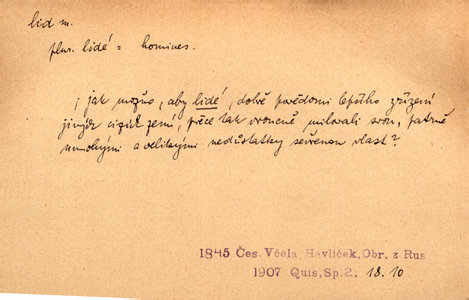 lid m.
plur. lidé = homines.
; jak možno, aby lidé, dobře povědomi lepšího zřízení
jiných cizích zemí, přece tak vroucně milovali svou, patrně
mnohými a velikými nedostatky sevřenou vlast?
1845 Čes. Včela, Havlíček, Obr. z Rus
1907 Quis, Sp. 2. 18.10